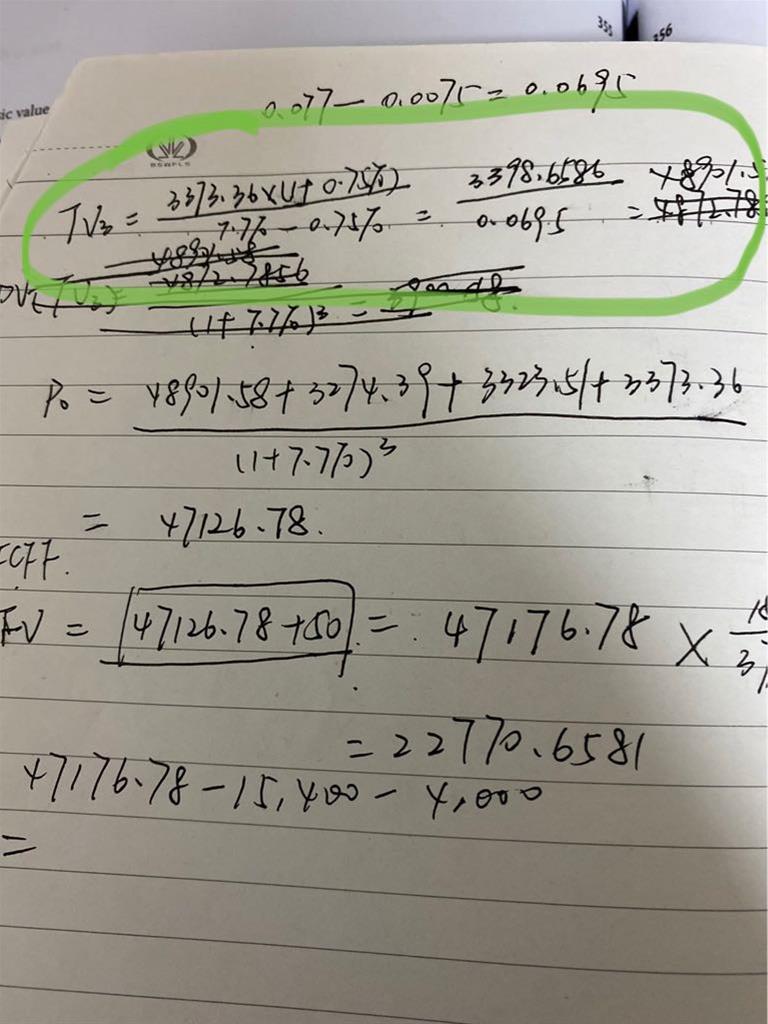 355
356
sic value
0.077 - 0.0075 = 0.0695
BSWPLS
TV3 = 3373.36×(1+0.75%) / 7.7% - 0.75% = 3398.6586 / 0.0695 = 48901.5
4872.78
48901.58
4872.7856
(1+7.7%)³ =
P0 = 48901.58 + 3274.39 + 3323.51 + 3373.36 / (1+7.7%)³
= 47126.78.
FCFF.
EV = 47126.78+50 = 47176.78 ×
= 22770.6581
47176.78 - 15,400 - 4,000
=